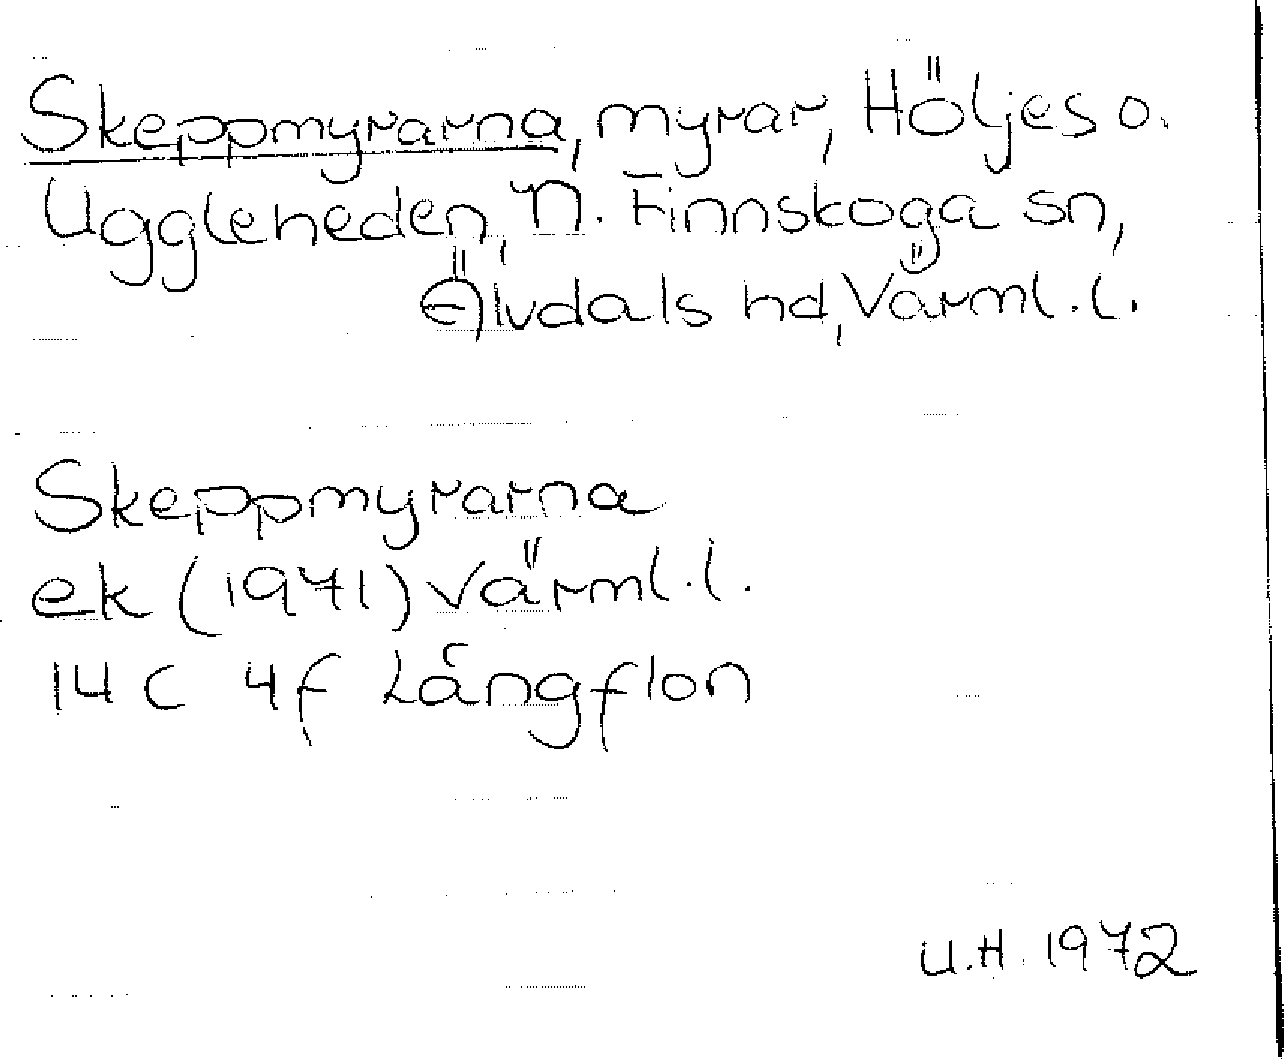 Skeppmyrarna, myrar, Höljes o.
Uggleheden, N. Finnskoga sn,
Älvdals hd, Värml. l.
Skeppmyrarna
ek (1971) Värml. l.
14 C 4f Långflon
U.H. 1972